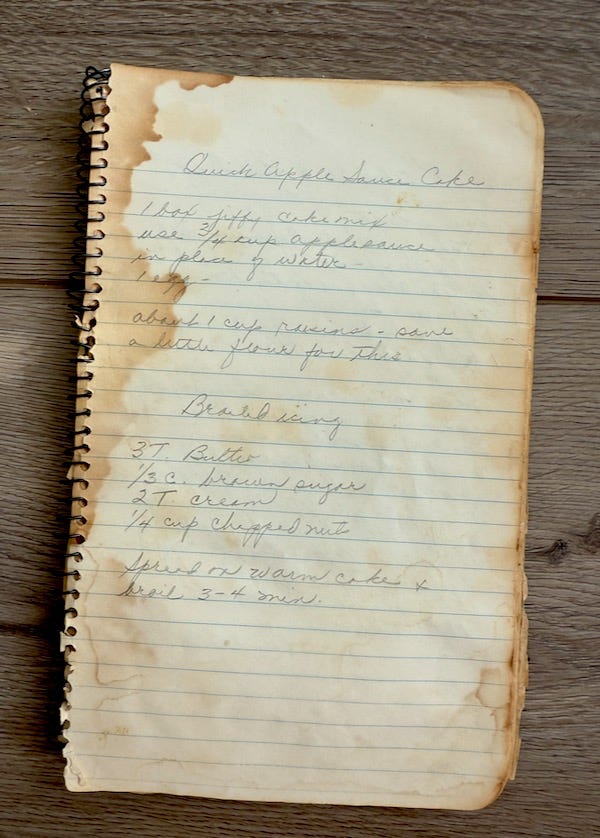 Quick Apple Sauce Cake
1 box jiffy cake mix
use 3/4 cup applesauce
in place of water
1 egg -
about 1 cup raisins - save
a little flour for this
Broiled icing
3 T. Butter
1/3 C. brown sugar
2 T. cream
1/4 cup chopped nuts
Spread on warm cake +
broil 3-4 min.